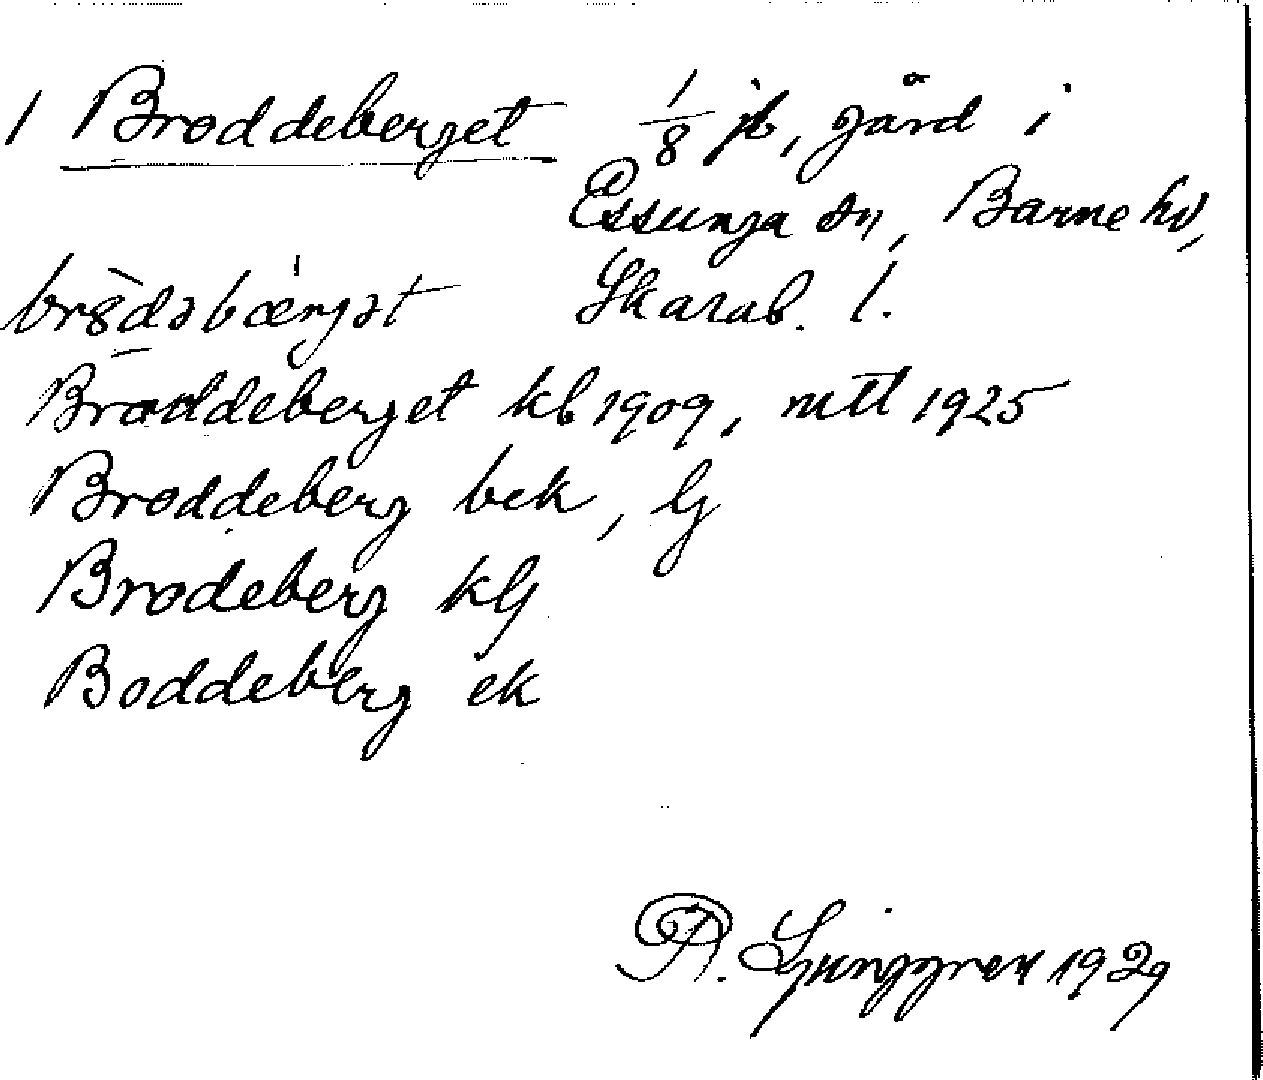 1 Broddeberget 1/8 jb, gård i
Essunga sn, Barne hd,
Skarab. l.
Broddeberget kb 1909, mtl 1925
Broddeberg bek, lj
Brodeberg klj
Boddeberg ek
R. Ljunggren 1929